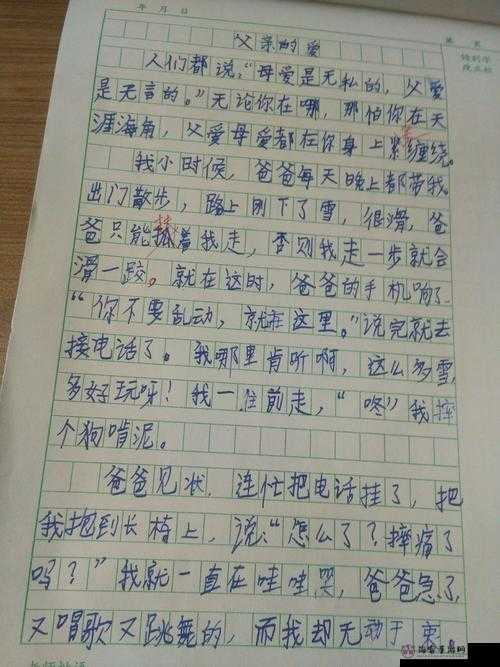 年 月 日
父亲的爱
人们都说,“母爱是无私的,父爱
是无言的。”无论你在哪,那怕你在天
涯海角,父爱母爱都在你身上紧缠绕。
我小时候,爸爸每天晚上都带我
出门散步,路上刚下了雪,很滑,爸
爸只能扶着我走,否则我走一步就会
滑一跤。就在这时,爸爸的手机响了
“你不要乱动,就在这里。”说完就去
接电话了。我哪里肯听啊,这么多雪,
多好玩呀!我一往前走,“咚”我摔
个狗啃泥。
爸爸见状,连忙把电话挂了,把
我抱到长椅上,说:“怎么了?摔痛了
吗?”我就一直在哇哇哭,爸爸急了,
又唱歌又跳舞的,而我却无动于衷